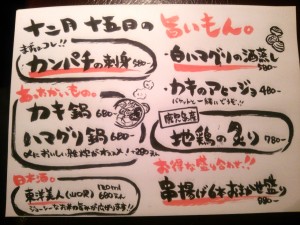 十二月 十五日の 旨いもん。
まずはコレ!!
カンパチの刺身 580-
あったかいもの。
カキ鍋 680-
ハマグリ鍋 680-
〆においしい雑炊がオススメ!-280-
日本酒。
東洋美人(山口県) 120ml 680-
ジューシーなお米の旨みが広がります!!
・白ハマグリの酒蒸し 580-
・カキのアヒージョ 480-
バケットと一緒にどうぞ!!
鹿児島産
地鶏の炙り 780-
お得な盛り合わせ!!
串揚げ6本おまかせ盛り 980-